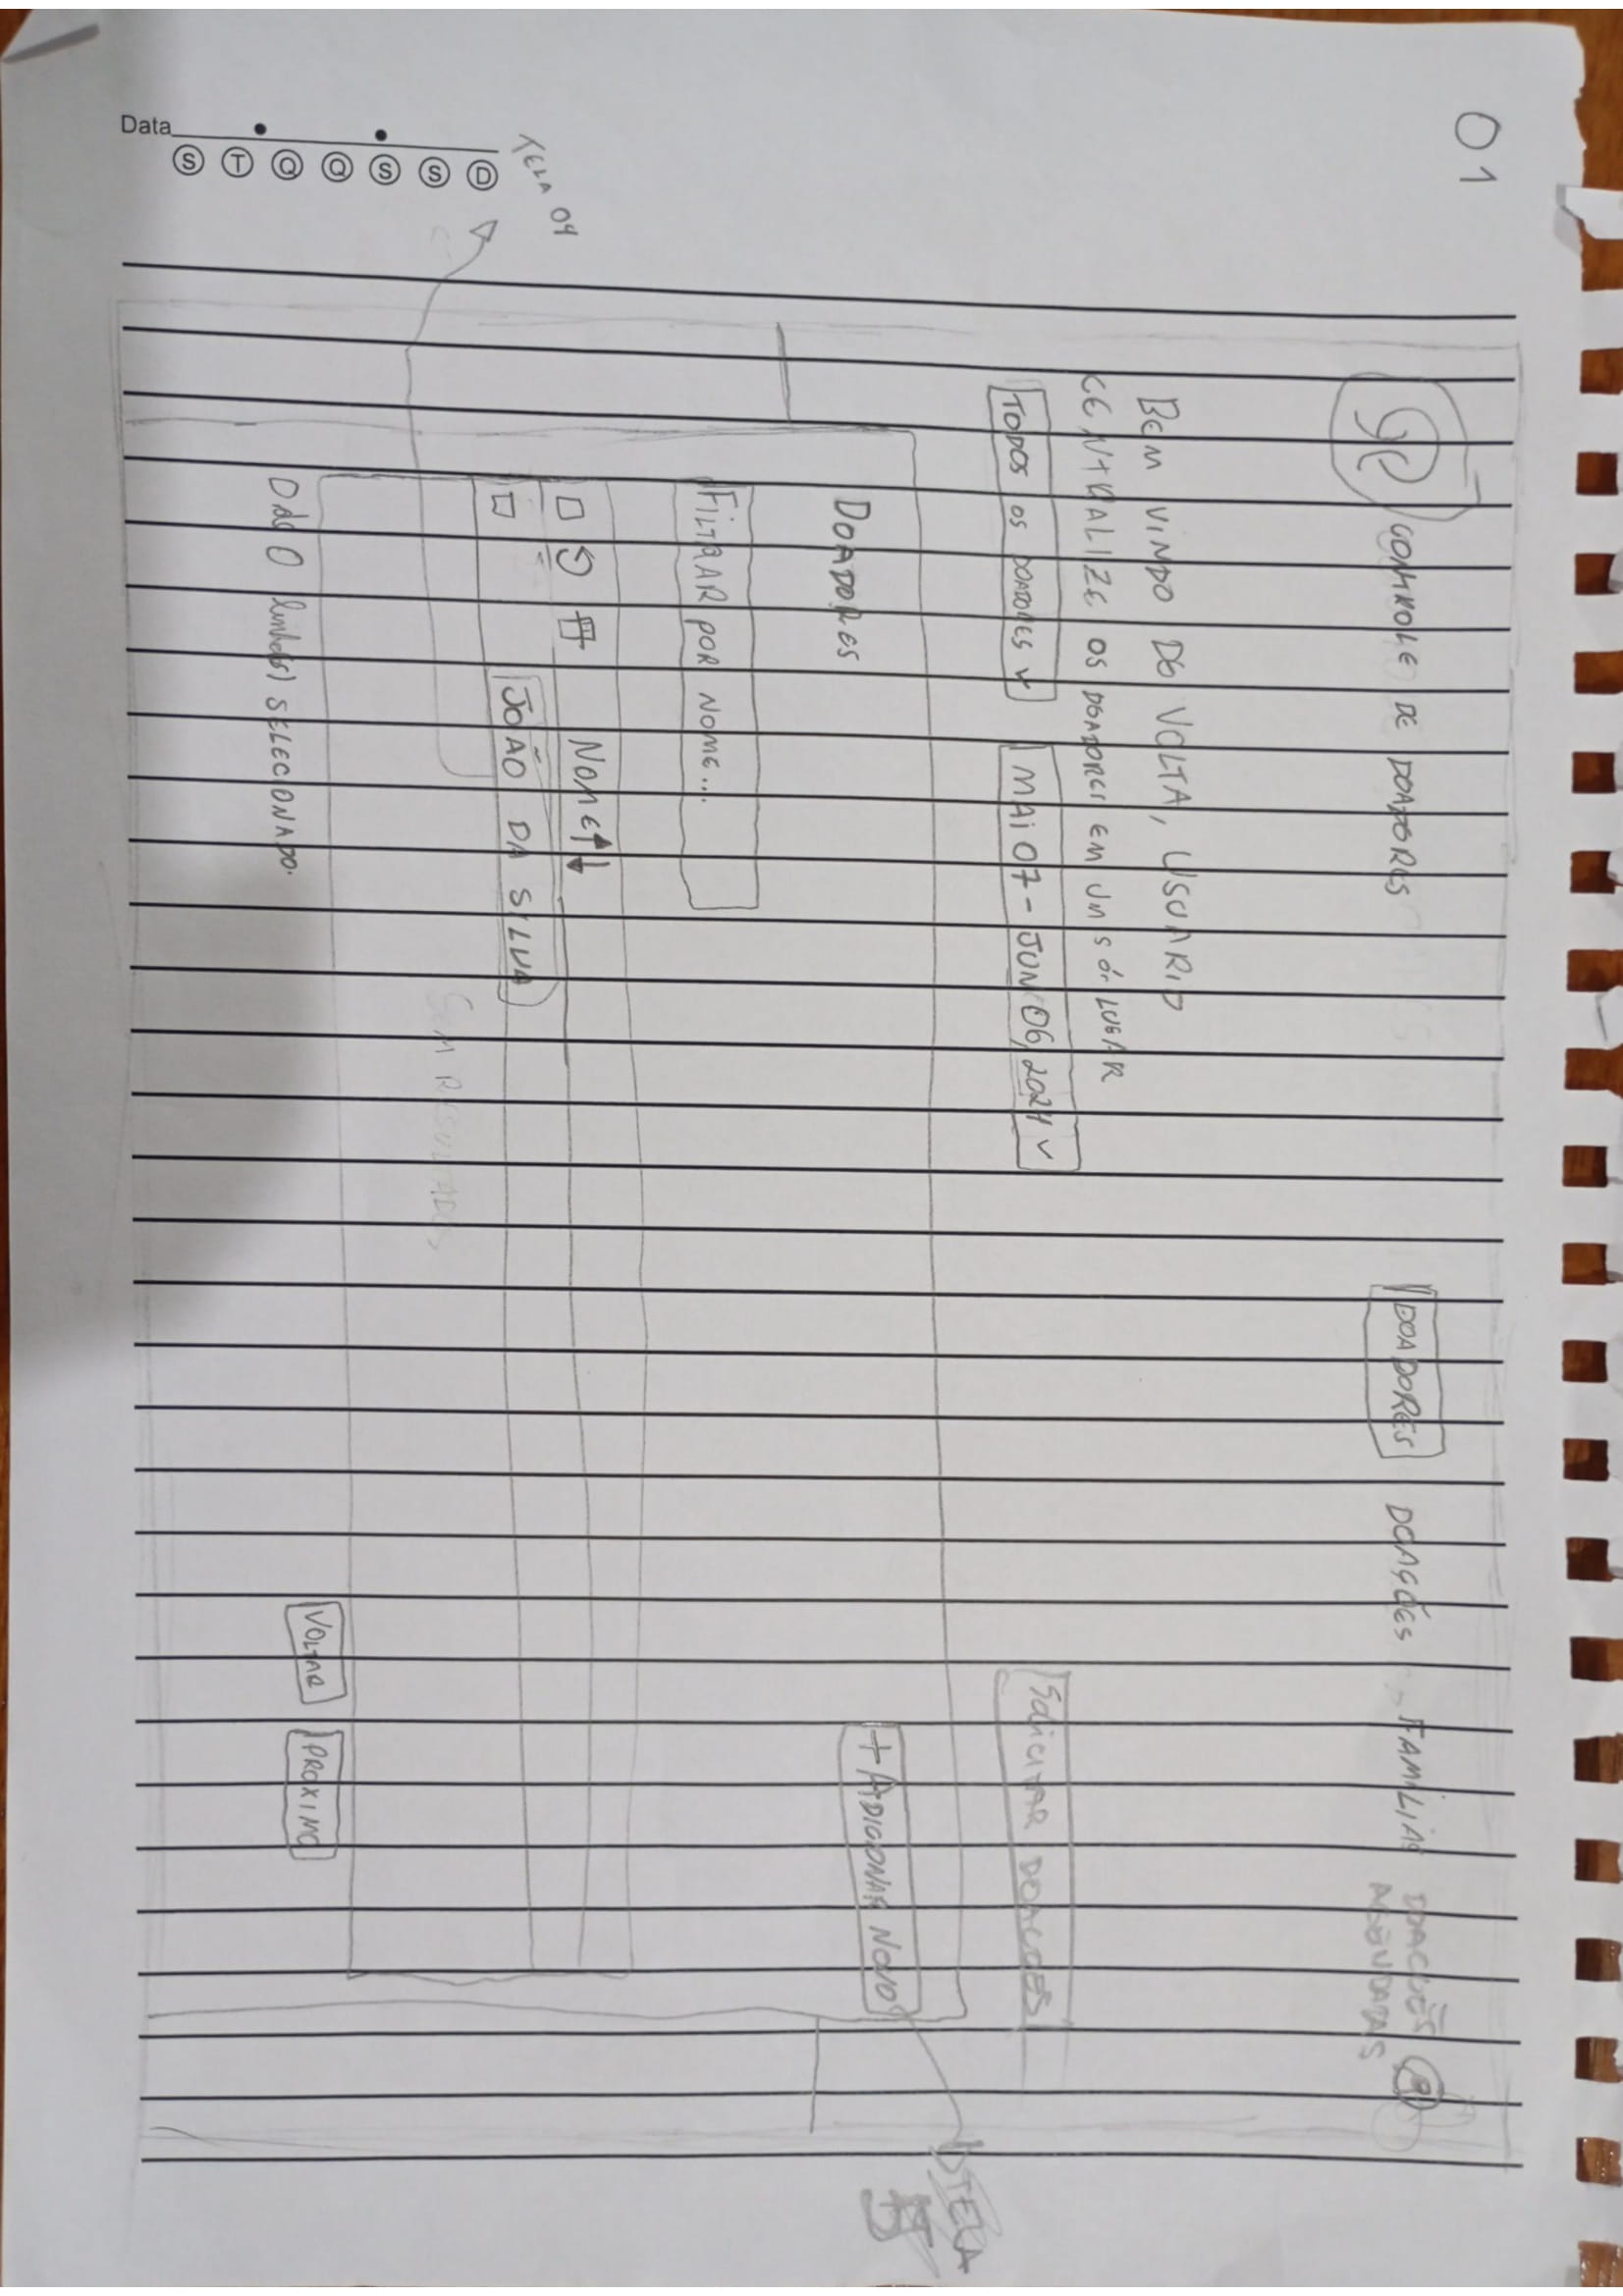 01
CONTROLE DE DOADORES
DOADORES
DOAÇÕES
FAMÍLIAS
DOAÇÕES
AGENDADAS
BEM VINDO DE VOLTA, USUARIO
CENTRALIZE OS DOADORES EM UM SÓ LUGAR
TODOS OS DOADORES
MAI 07 - JUN 06, 2024
SOLICITAR DOAÇÕES
DOADORES
+ ADICIONAR NOVO
TELA
FILTRAR POR NOME...
NOME
JOÃO DA SILVA
SEM RESULTADOS
0 linha(s) SELECIONADO.
VOLTAR
PROXIMO
TELA 04
Data
S T Q Q S S D